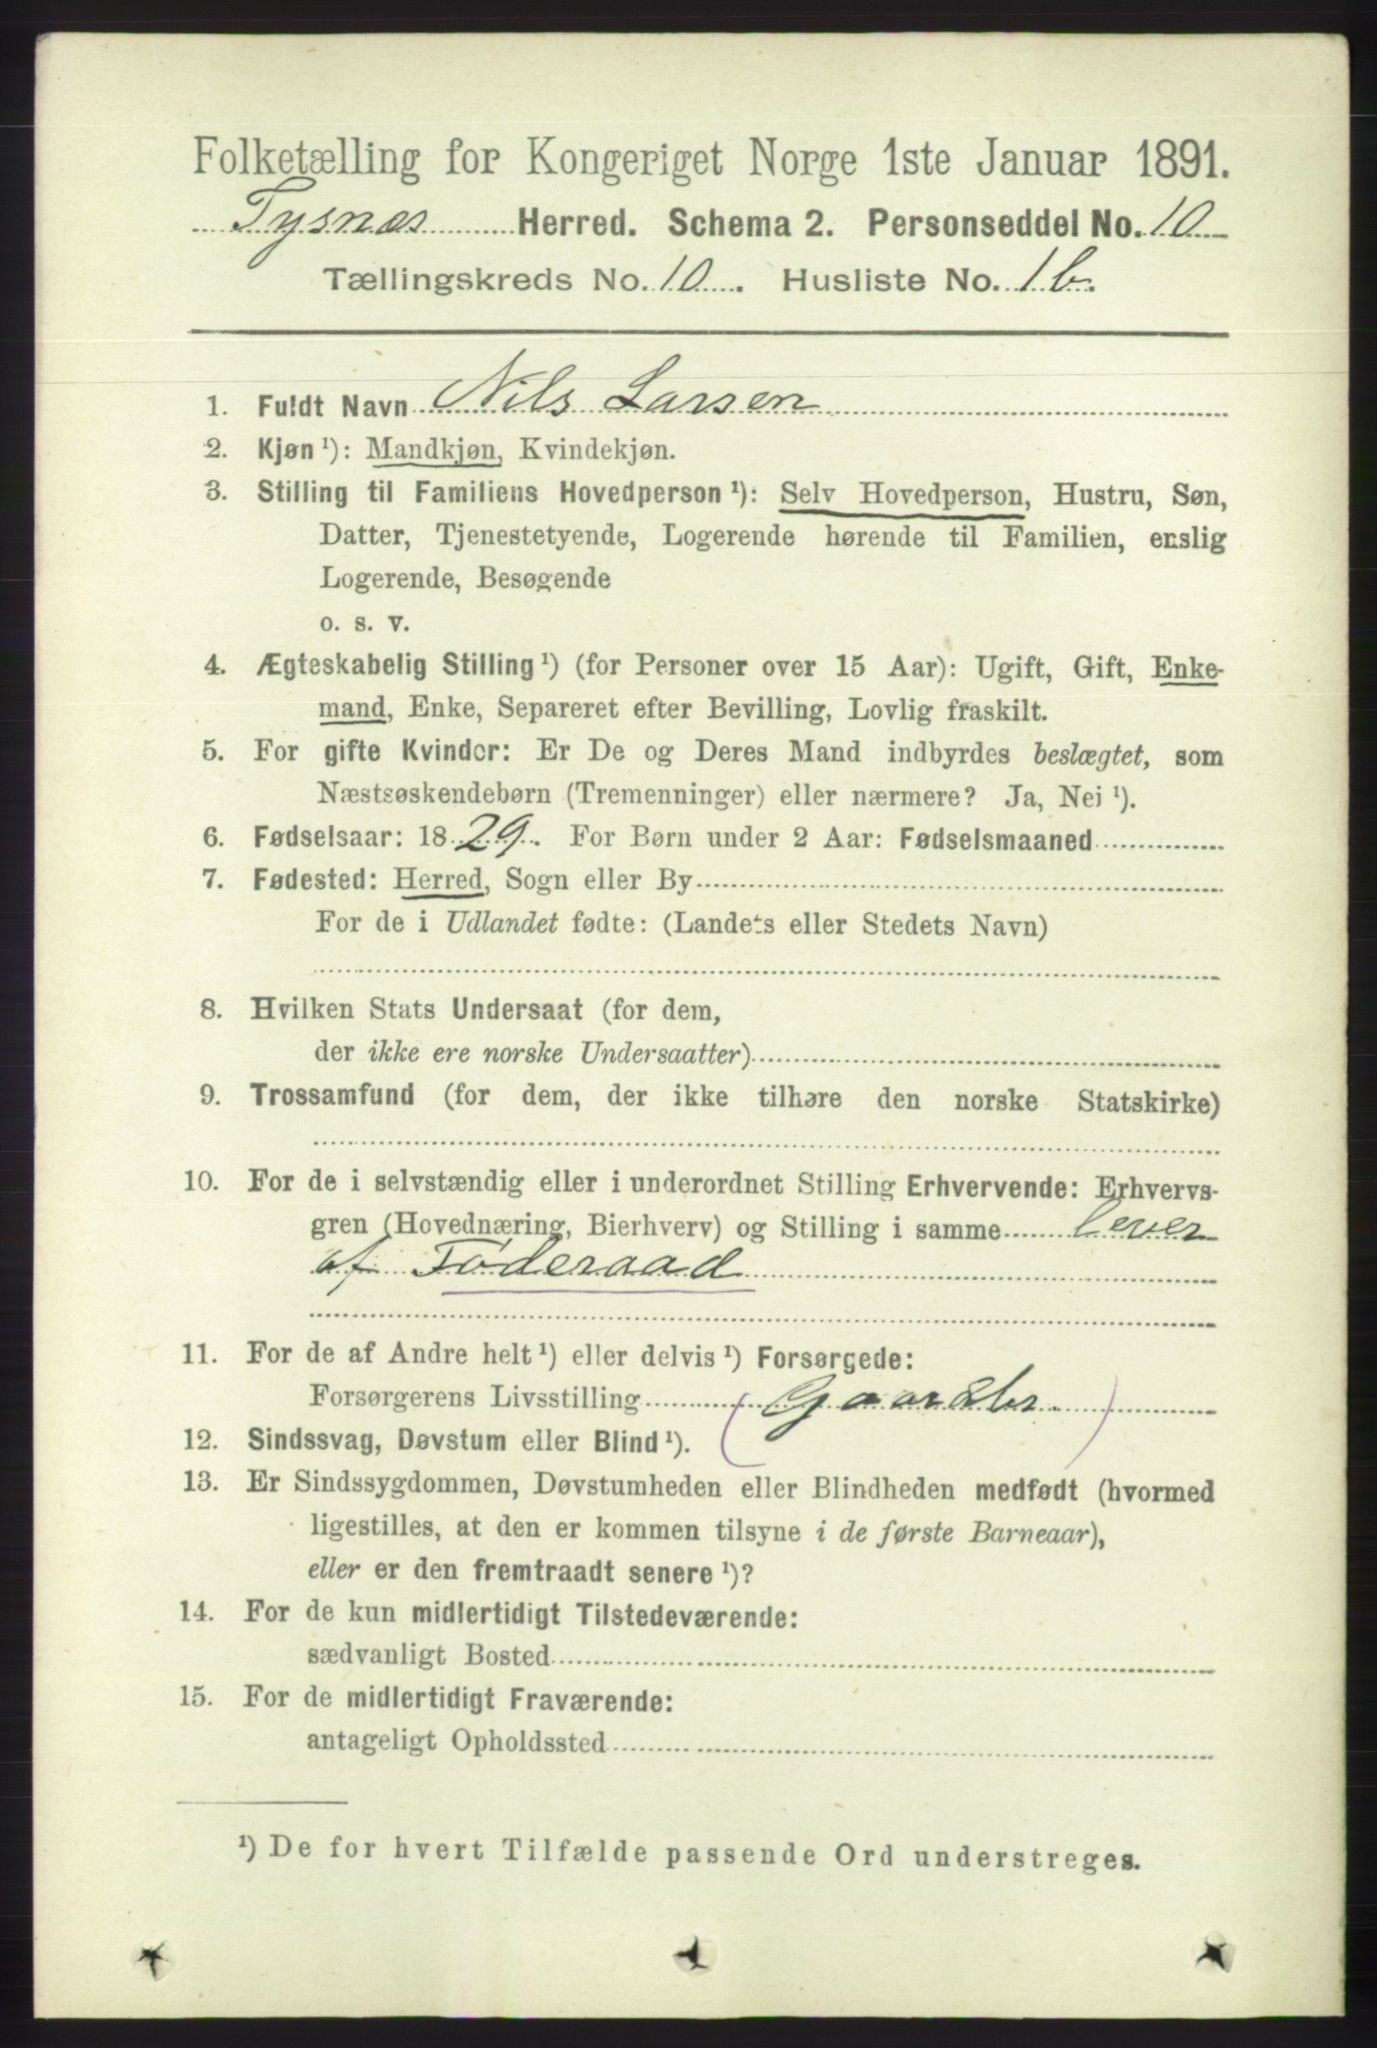 Folketælling for Kongeriget Norge 1ste Januar 1891.
Tysnæs Herred. Schema 2. Personseddel No. 10
Tællingskreds No. 10. Husliste No. 1b.
1. Fuldt Navn Nils Larsen
2. Kjøn ¹): Mandkjøn, Kvindekjøn.
3. Stilling til Familiens Hovedperson ¹): Selv Hovedperson, Hustru, Søn,
Datter, Tjenestetyende, Logerende hørende til Familien, enslig
Logerende, Besøgende
o. s. v.
4. Ægteskabelig Stilling ¹) (for Personer over 15 Aar): Ugift, Gift, Enke-
mand, Enke, Separeret efter Bevilling, Lovlig fraskilt.
5. For gifte Kvinder: Er De og Deres Mand indbyrdes beslægtet, som
Næstsøskendebørn (Tremenninger) eller nærmere? Ja, Nei ¹).
6. Fødselsaar: 1829. For Børn under 2 Aar: Fødselsmaaned
7. Fødested: Herred, Sogn eller By
For de i Udlandet fødte: (Landets eller Stedets Navn)
8. Hvilken Stats Undersaat (for dem,
der ikke ere norske Undersaatter)
9. Trossamfund (for dem, der ikke tilhøre den norske Statskirke)
10. For de i selvstændig eller i underordnet Stilling Erhvervende: Erhvervs-
gren (Hovednæring, Bierhverv) og Stilling i samme lever
af Føderaad
11. For de af Andre helt ¹) eller delvis ¹) Forsørgede:
Forsørgerens Livsstilling (Gaardbr.)
12. Sindssvag, Døvstum eller Blind ¹).
13. Er Sindssygdommen, Døvstumheden eller Blindheden medfødt (hvormed
ligestilles, at den er kommen tilsyne i de første Barneaar),
eller er den fremtraadt senere ¹)?
14. For de kun midlertidigt Tilstedeværende:
sædvanligt Bosted
15. For de midlertidigt Fraværende:
antageligt Opholdssted
¹) De for hvert Tilfælde passende Ord understreges.